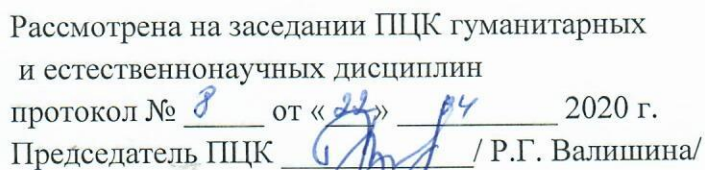 Рассмотрена на заседании ПЦК гуманитарных
и естественнонаучных дисциплин
протокол № 8 от « 22 » 04 2020 г.
Председатель ПЦК ______________/ Р.Г. Валишина/